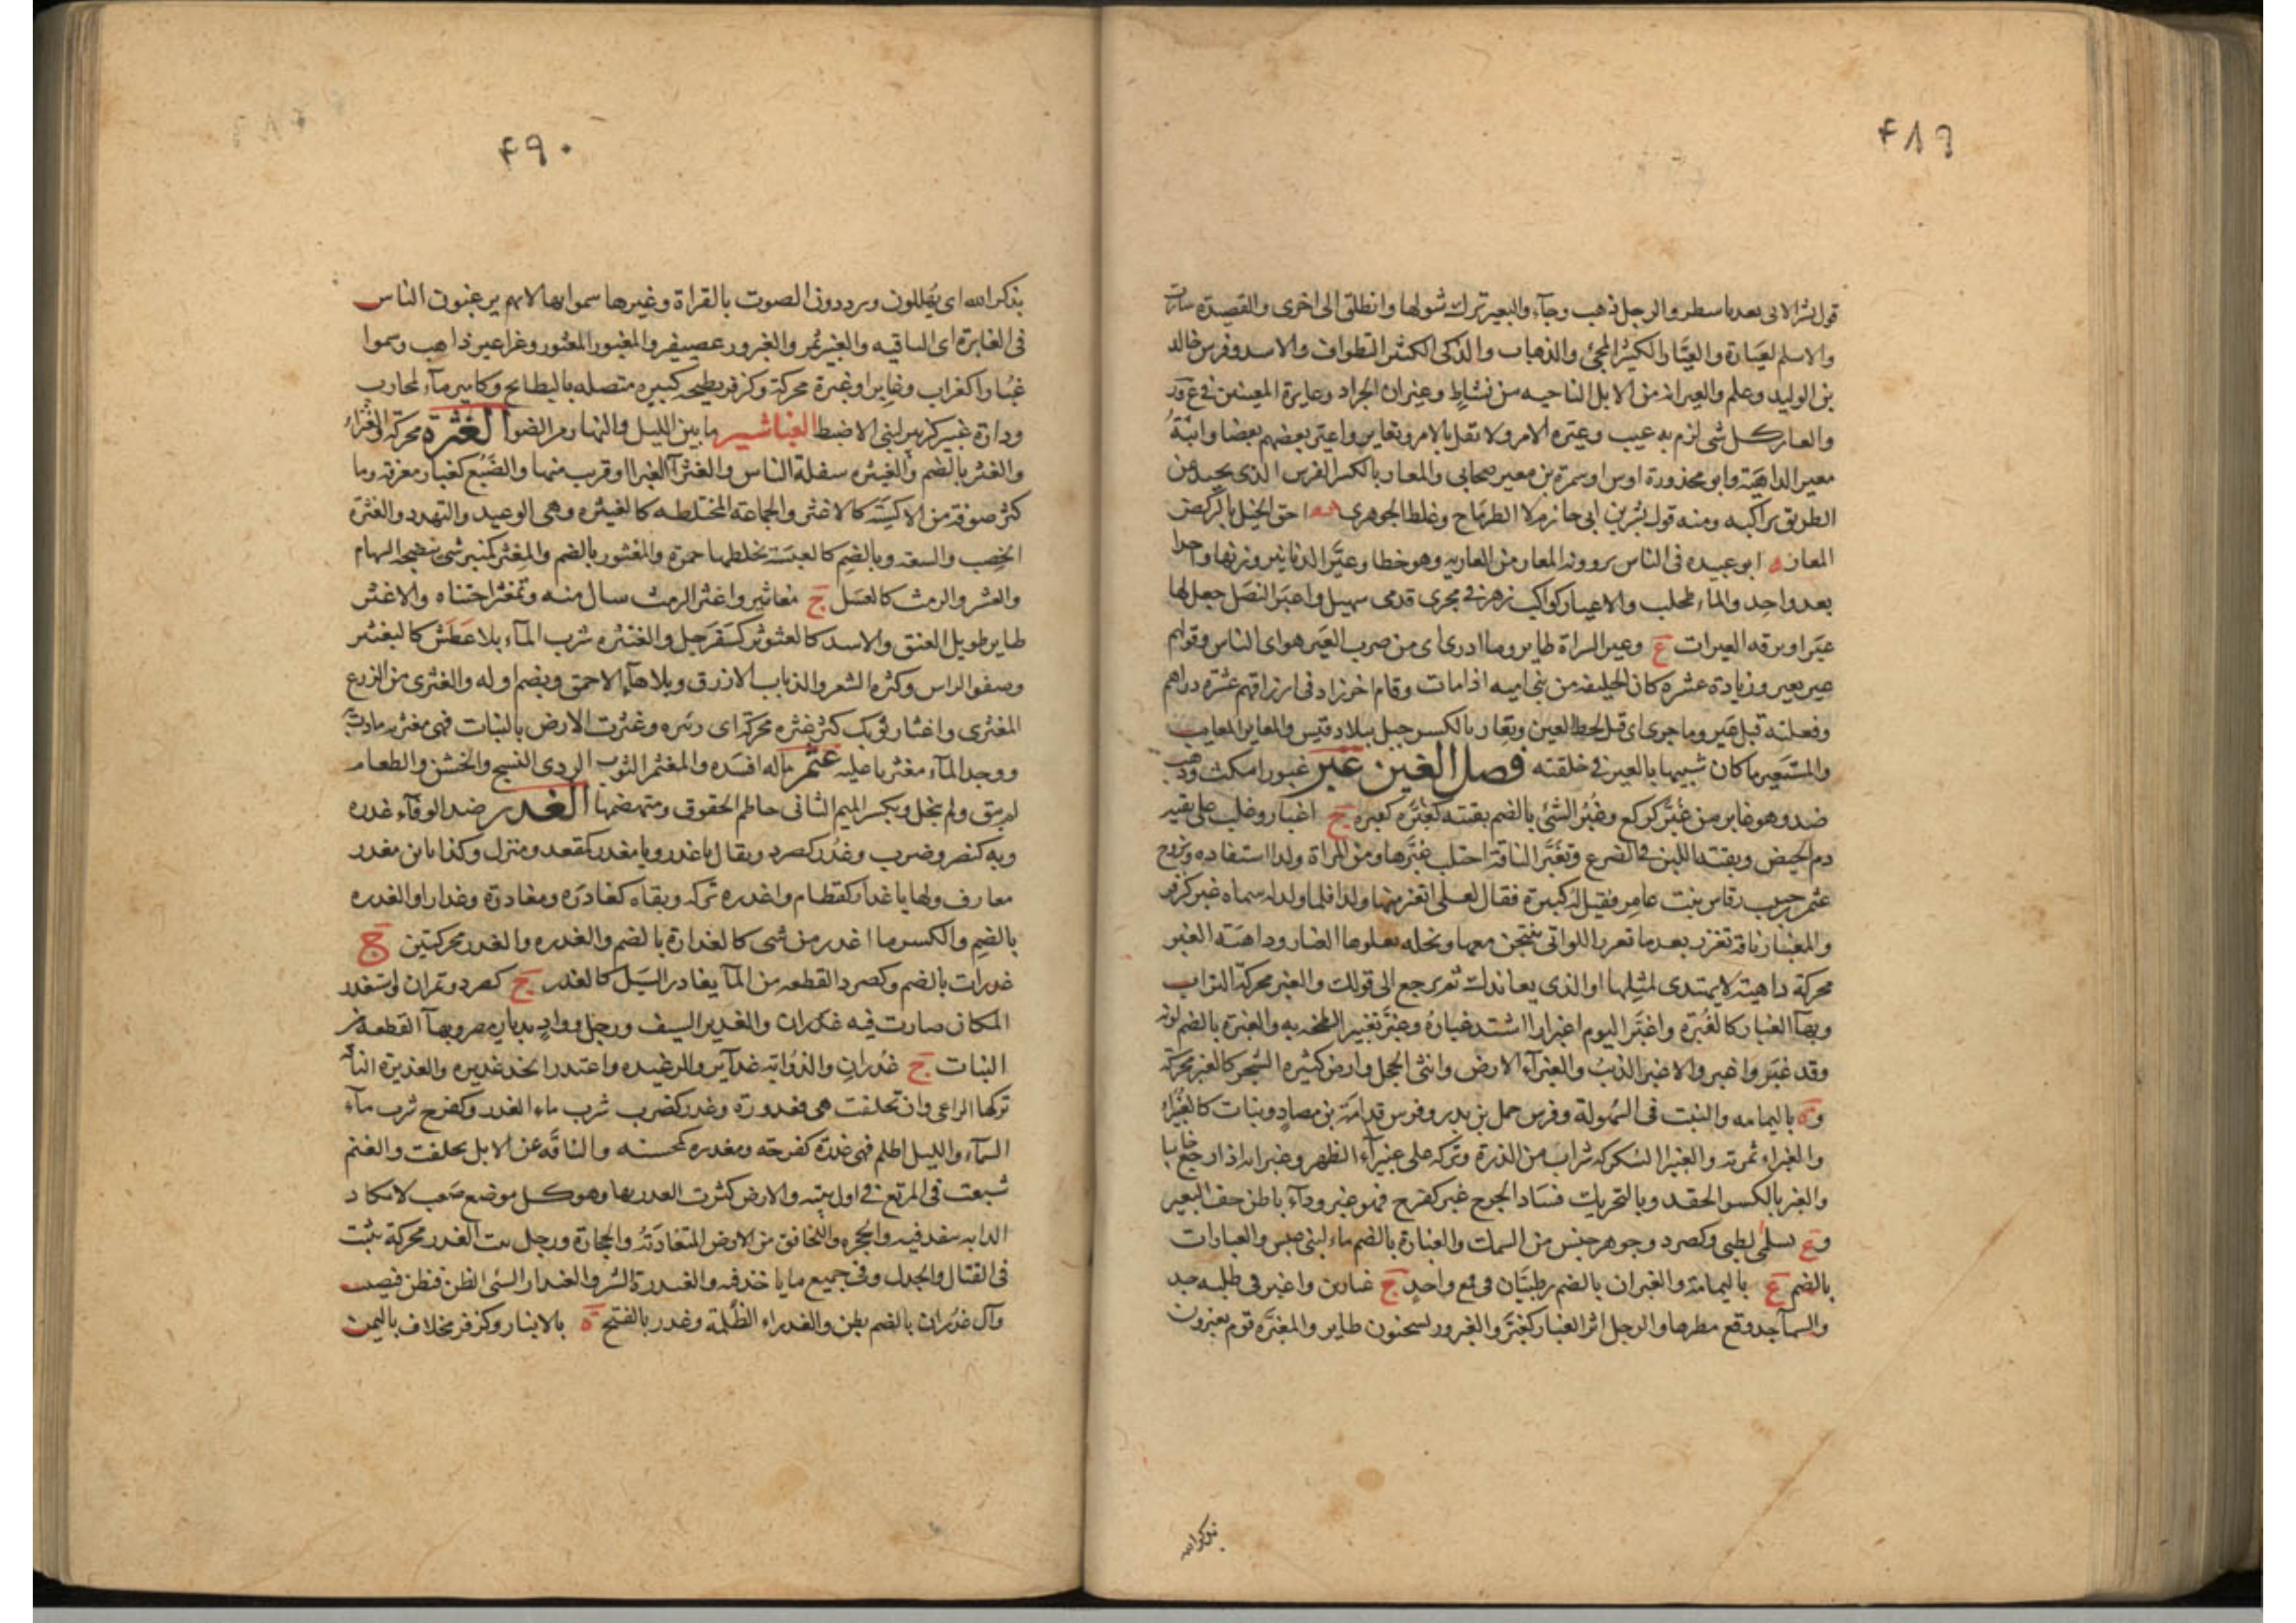 ۴۸۹
قول بشر الاتى بعد باسطر والرجل ذهب وجآء والبعير ترك شولها وانطلق الى اخرى والقصيدة سارت
والاسم العيارة والعيّار الكثير المجئ والذهاب والذكى الكثير التطواف والاسد وفرس خالد
بن الوليد وعلم والعيرانه من الابل الناجيه من نشاط وعيران الجراد وعايرة العينين فى ع ور
والعار كل شى لزم به عيب وعيره الامر ولا تقل بالامر وتعاير واعتير بعضهم بعضا وابنة
معير الداهية وابو محذورة اوس او سمرة بن معير صحابى والمعار بالكسر الفرس الذى يحيد عن
الطريق براكبه ومنه قول بشر بن ابى خازم لا الطرماح وغلط الجوهرى احق الخيل بالركض
المعار ابو عبيده فى الناس يروونه المعار من العاريه وهو خطا وعيّر الدنانير وزنها واحدا
بعد واحد والماء طحلب والاعيار كواكب زهر فى مجرى قدمى سهيل واعير النصل جعل لها
عيرا وبرقه العيرات ع وعير السراة طاير وما ادرى اى من ضرب العير هو اى الناس وقولهم
عير بعير وزيادة عشره كان الخليفه من بنى اميه اذا مات وقام اخر زاد فى ارزاقهم عشرة دراهم
وفعلته قبل عير وما جرى اى قبل لحظ العين وتعار بالكسر جبل ببلاد قيس والمعاير المعايب
والمستعير ما كان شبيها بالعير فى خلقته فصل الغين غبر غبورا مكث وذهب
ضد وهو غابر من غبّر كركع وغُبر الشئ بالضم بقيته كغبّره كغبره ج اغبار وغلب على بقيه
دم الحيض وبقيته اللبن فى الضرع وتغبّر الناقة احتلب غبّرها ومن المراة ولدا استفاده وتزوج
عثمن حبيب رقاش بنت عامر فقيل له كبيرة فقال لعلى اتغبر منها ولدا فلما ولد له سماه غبر كزفر
والمغبار ناقة تغزر بعد ما تعرز اللواتى ينتجن معها ونخله يعلوها الغبار وداهية الغبر
محركة داهية لا يهتدى لمثلها او الذى يعاندك ثم يرجع الى قولك والغبر محركة التراب
وبهآ الغبار كالغُبرة واغبَر اليوم اغبرارا اشتد غباره وغبّر تغبيرا لطخه به والغبرة بالضم لونه
وقد غبَر واغبر والاغبر الذئب والغبرآء الارض وانثى الحجل وارض كثيره الشجر كالغبر محركة
وة باليمامه والنبت فى السهولة وفرس حمل بن بدر وفرس قدامة بن مصاد ونبات كالغبيراء
والغبراء ثمرته والغبيرا السكركه شراب من الذرة وتركه على غبيرآء الظهر وغبرايه اذا رجع خايبا
والغبر بالكسر الحقد وبالتحريك فساد الجرح غبر كفرح فهو غبر ودآء باطن خف البعير
وع بسلمى لطيى وكصرد وجوهر جنس من السمك والغبارة بالضم ماء لبنى عبس والغبارات
بالضم ع باليمامة والغبران بالضم رطبتان فى قمع واحد ج غبارين واغبر فى طلبه جد
والسمآ جد وقع مطرها والرجل اثر الغبار كغبّر والغبرور كسحنون طاير والمغبّره قوم يغبرون
بذكر الله
۴۹۰
بذكر الله اى يهللون ويرددون الصوت بالقراة وغيرها سموا بها لانهم يرغبون الناس
فى الغابرة اى الباقيه والغبر ثمر والغبرور عصيفر والمغبور المغثور وغرا عبر ذاهب وسموا
غبارا كغراب وغابرا وغبرة محركة وكزفر بطيحه كبيره متصله بالبطايح وكامير مآء لمحارب
ودارة غبير كزبير لبنى الاضبط الغباشير ما بين الليل والنهار من الضوا الغثرة محركة والغثراء
والغثر بالضم والغيثره سفلة الناس والغثرآ الغبرا او قرب منها والضبع كغبار معرفه وما
كثر صوفه من الاكسية كالاغثر والجماعة المختلطه كالغيثره وهى الوعيد والتهدد والغثرة
الخصب والسعه وبالضم كالغبسة تخلطها حمرة والمغثور بالضم والمغثر كمنبر شى ينضحه الثمام
والعشر والرمث كالعسل ج مغاثير واغثر الرمث سال منه وتمغثر اجتناه والاغثر
طاير طويل العنق والاسد كالغثوثر كسفرجل والغنثره شرب المآء بلا عطش كالتغنثر
وضفو الراس وكثره الشعر والذباب الازرق وبلا هآء الاحمق ويضم اوله والغثرى من الزرع
العثرى واغثار ثوبك كثر غثره محركة اى زئبره وغثرت الارض بالنبات فهى مغثريه مادت
ووجد المآء مغثريا عليه غثمر ماله افسده والمغثمر الثوب الردى النسج والخشن والطعام
لم ينق ولم ينخل وبكسر الميم الثانى حاطم الحقوق ومتهضمها الغدر ضد الوفآء غدره
وبه كنصر وضرب وغدر كصرد ويقال يا غدر ويا مغدر كمقعد ومنزل وكذا يا بن مغدر
معارف ولها يا غدار كقطام واغدره تركه وبقاه كغادره ومغادرة وغدارا والغدره
بالضم والكسر ما اغدر من شى كالغدارة بالضم والغدره والغدر محركتين ج
غدرات بالضم وكصرد القطعه من المآ يغادر السيل كالغدير ج كصرد وتمران واستغدر
المكان صارت فيه غدران والغدير السيف ورجل وواد بديار مضر وبهآ القطعه من
النبات ج غدران والذوابة غدآير والرغيده واغتدر اتخذ غديره والغديرة الناقة
تركها الراعى وان تخلفت هى فغدورة وغدر كضرب شرب ماء الغدير وكفرح شرب مآء
السمآء والليل اظلم فهى غدرة كفرحه ومغدره كمحسنه والناقة عن الابل تخلفت والغنم
شبعت فى المرتع فى اول نبته والارض كثرت الغدر بها وهو كل موضع صعب لا تكاد
الدابه تنفذ فيه والجحره واللخاقيق من الارض المتغادرة والحجارة ورجل ثبت الغدر محركة يثبت
فى القتال والجدل وفى جميع ما ياخذ فيه والغدرة الشر والغيدار السئ الظن فيظن فيصيب
وآل غدران بالضم بطن والغدراء الظلمة وغدر بالفتح ة بالانبار وكزفر مخلاف باليمن